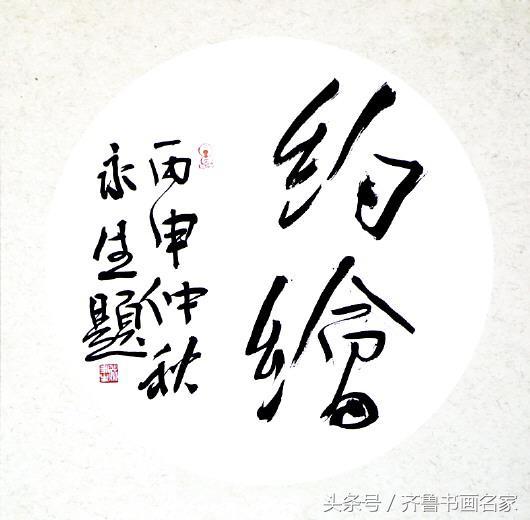 約繪
丙申仲秋
永生題
头条号／齐鲁书画名家